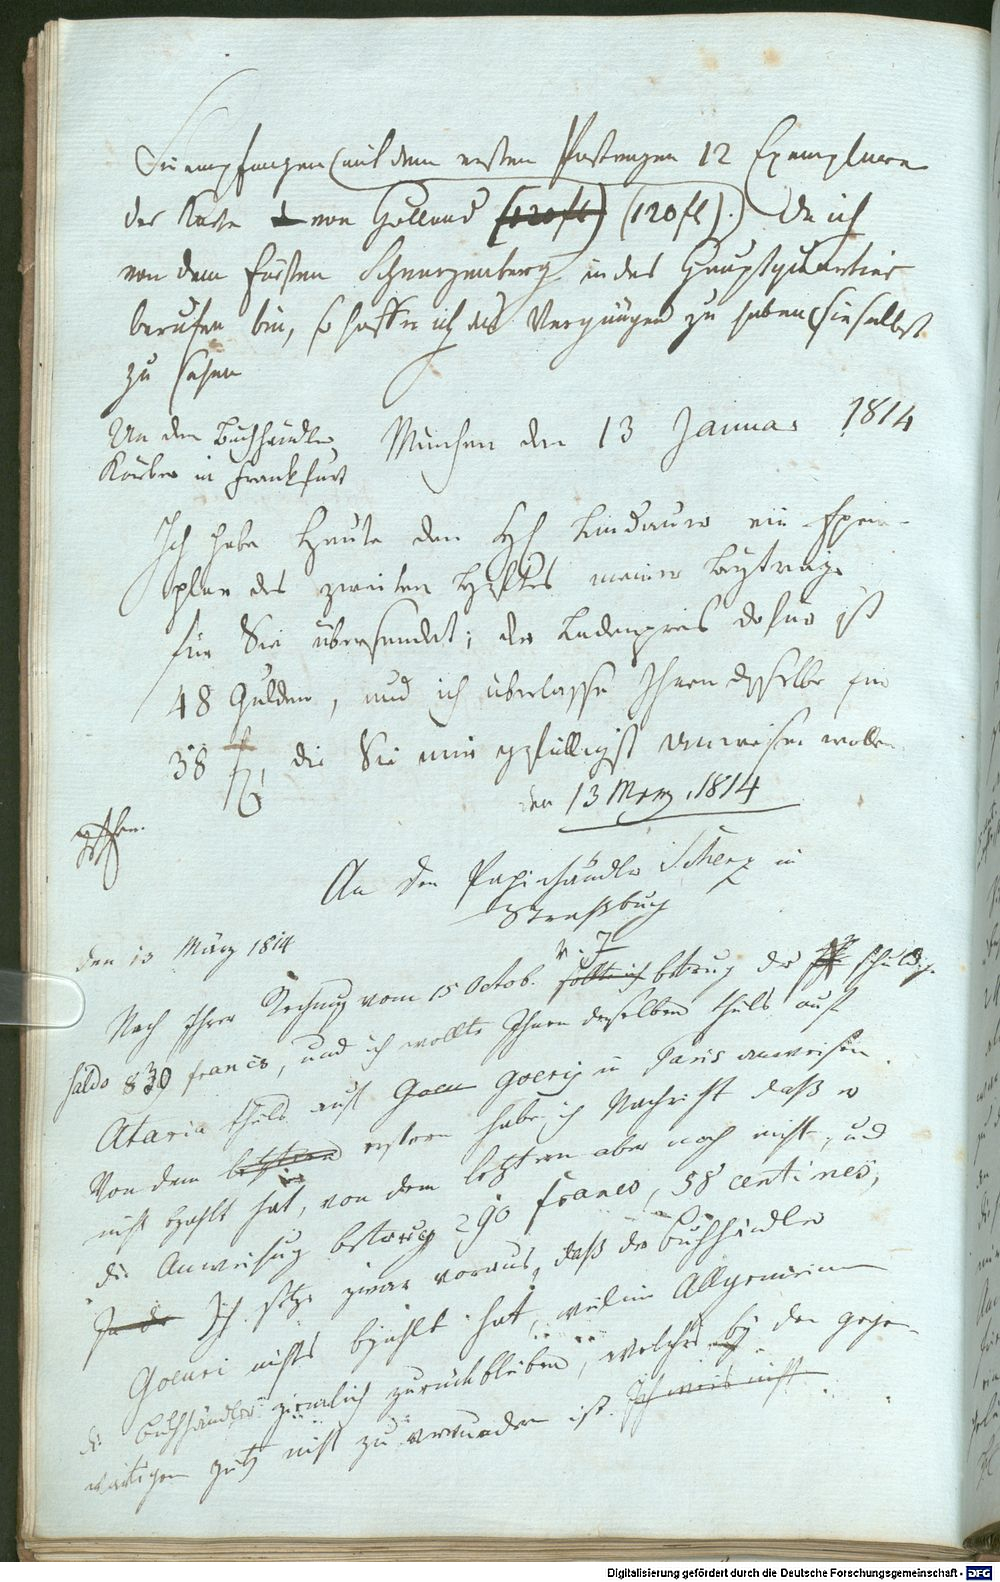 Sie empfangen (mit dem ersten Postwagen 12 Exemplare
der Karte von Holland (120 fl) (120 fl).) Da ich
von dem Fürsten Schwarzenberg in das Hauptquartier
berufen bin, so hoffe ich das Vergnügen zu haben Sie selbst
zu sehen
An den Buchhändler München den 13 Januar 1814
Körber in Frankfurt
Ich habe Heute den H Lindauer ein Exem-
plar des zweiten Heftes meiner Beyträge
für Sie übersendet; der Ladenpreis dafür ist
48 Gulden, und ich überlasse Ihnen dasselbe für
38 f, die Sie mir gefälligst anweisen wollen
den 13 Merz 1814
An den Papierhändler Scherz in
Straßburg
den 13 März 1814
v. J
Nach Ihrer Rechnung vom 15 Octob. sollte ich betrug der schuldige
saldo 839 francs, und ich wollte Ihnen denselben theils auf
Ataria theils auf Goeu Goerig in Paris anweisen.
Von dem letztern erstern habe ich Nachricht daß er
nicht bezahlt hat, von dem letztern aber noch nicht, und
die Anweisug betrug 290 francs, 58 centimes,
In der Ich setze zwar voraus, daß der Buchhändler
Goeuri nichts bezahlt hat, weil im Allgemeinen
die Buchhändler ziemlich zurückbleiben, welches by den gegen-
wärtigen zu verwundern ist. Ich weis nicht